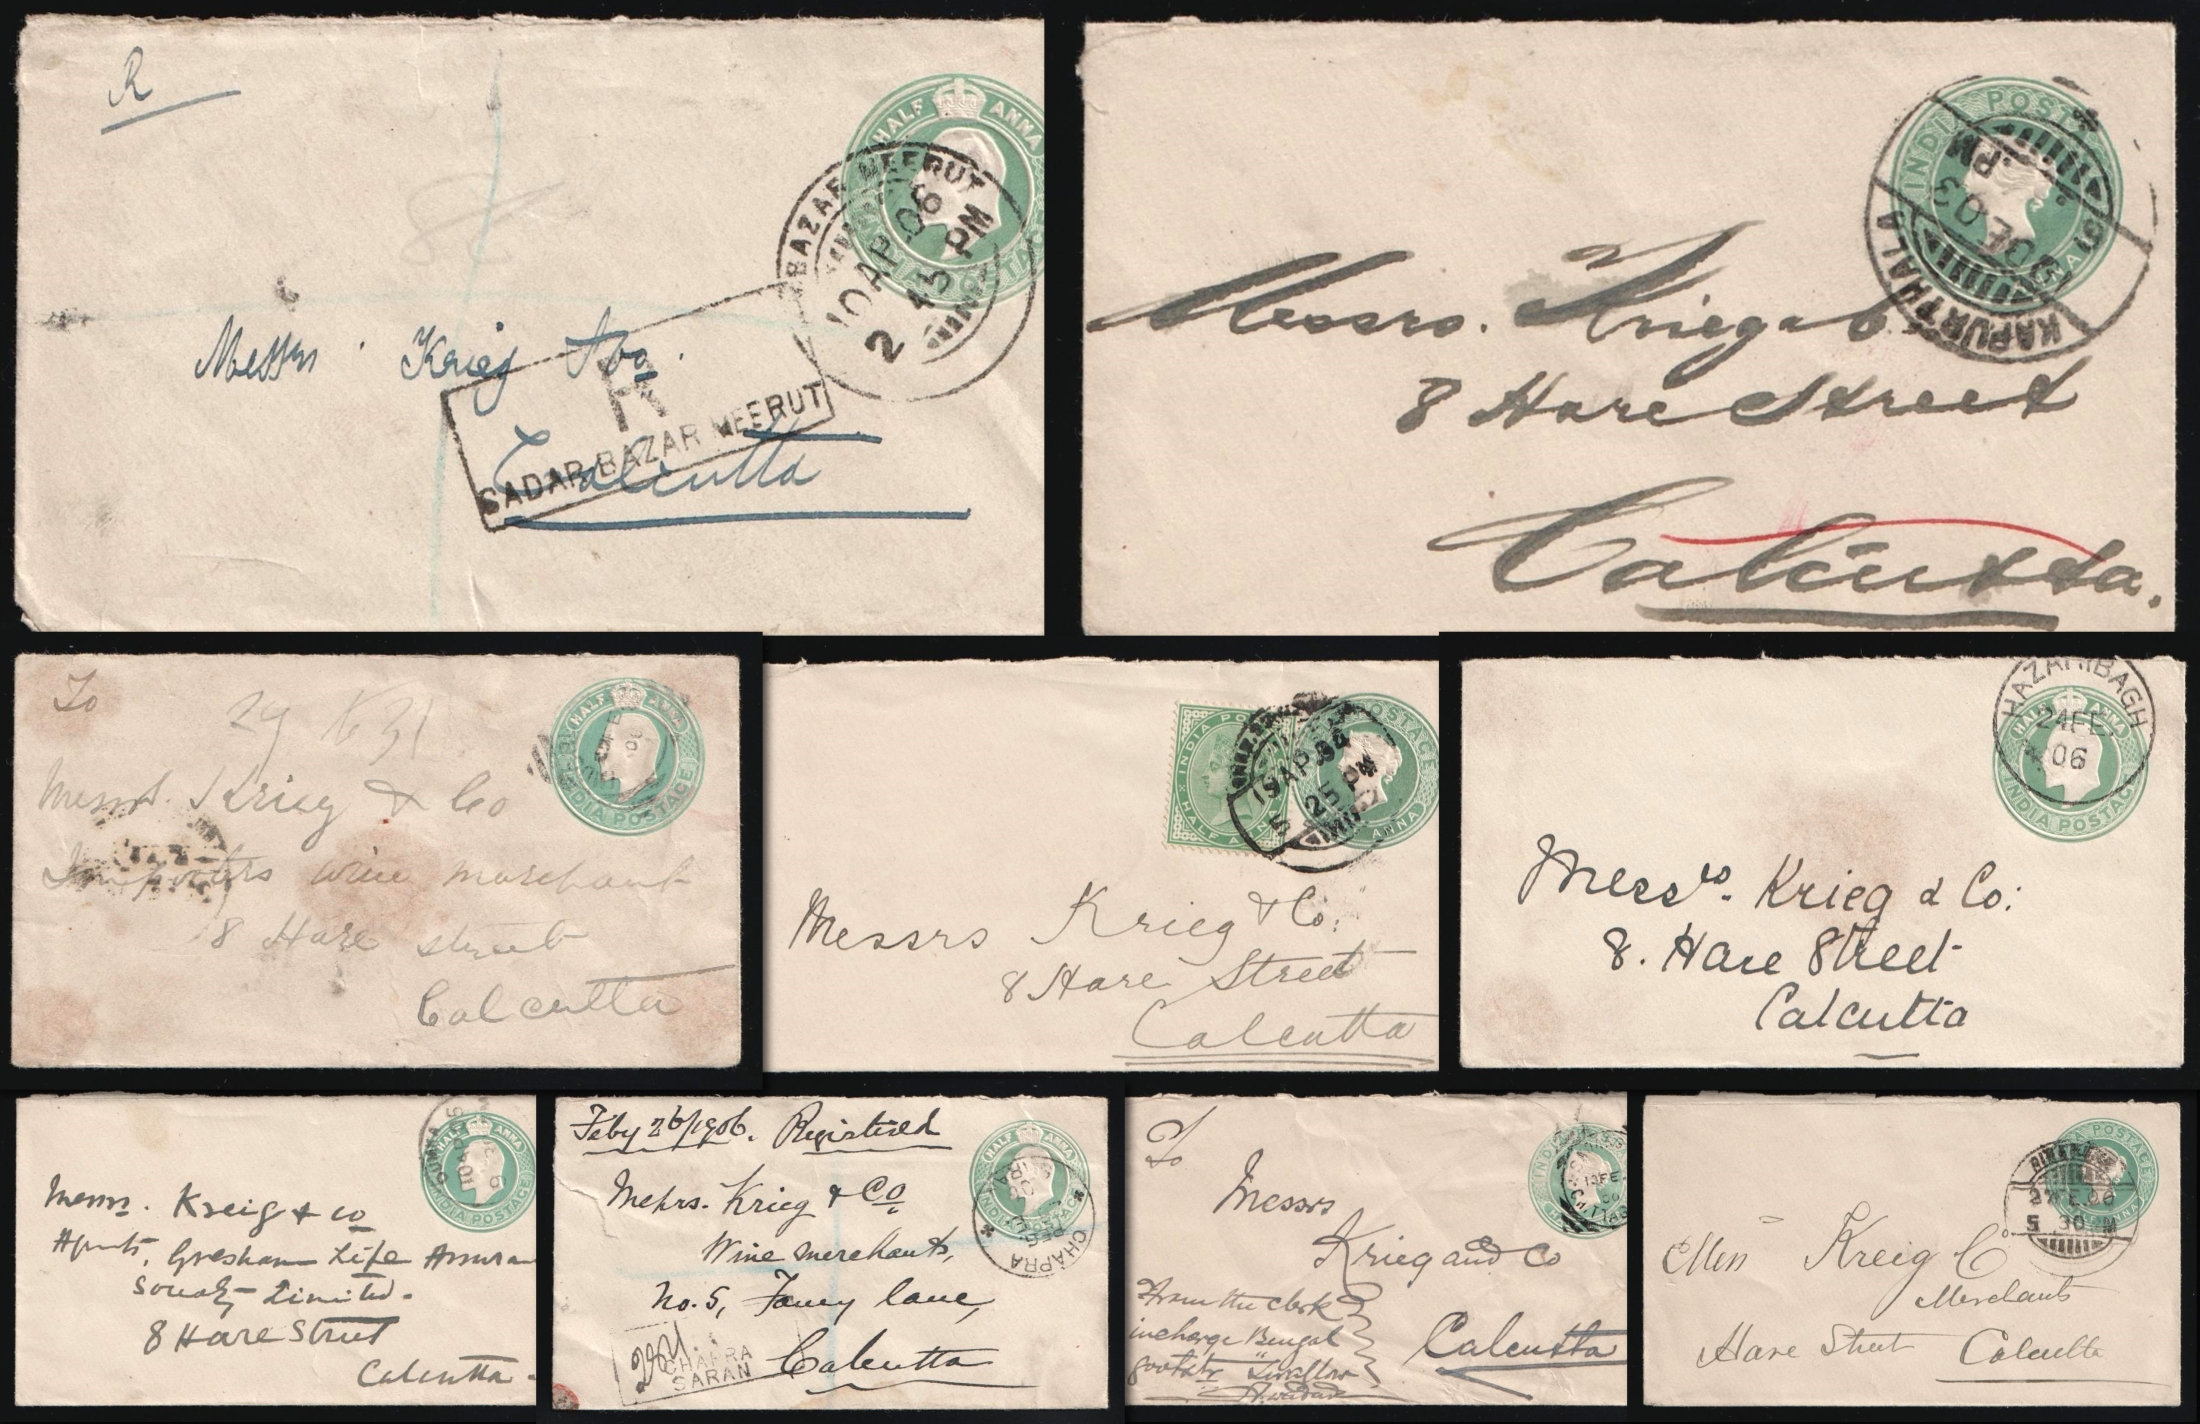 R
HALF ANNA
BAZAR MEERUT
10 AP 06
2 45 PM
Messrs Krieg & Co.
R
SADAR BAZAR MEERUT
Calcutta
INDIA POSTAGE
KAPURTHALA
DE 03
PM
Messrs. Krieg & Co
8 Hare Street
Calcutta.
To
HALF ANNA
INDIA POSTAGE
Messrs. Krieg & Co
Importers wine merchant
8 Hare street
Calcutta
INDIA POSTAGE
HALF ANNA
19 AP
5 25 PM
Messrs Krieg & Co.
8 Hare Street
Calcutta
HAZARIBAGH
24 FE
06
HALF ANNA
INDIA POSTAGE
Messrs. Krieg & Co:
8. Hare Street
Calcutta
DUMKA
HALF ANNA
INDIA POSTAGE
Messrs. Kreig & Co
Agents, Gresham Life Assuran
Society Limited.
8 Hare Street
Calcutta
Feby 26/1906. Registered
HALF ANNA
INDIA POSTAGE
CHAPRA
Messrs. Krieg & Co,
Wine merchants,
No. 5, Fancy lane,
Calcutta
CHAPRA
SARAN
To
Messrs
Krieg and Co
From the clerk
incharge Bengal
Calcutta
13 FE
INDIA POSTAGE
27 FE 06
5 30 PM
Kreig Co
Merchants
Hare Street Calcutta